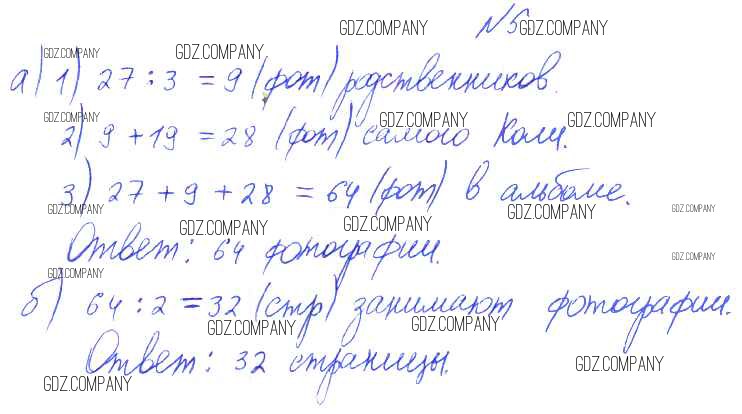 GDZ.COMPANY №5 GDZ.COMPANY
GDZ.COMPANY GDZ.COMPANY
а) 1) 27 : 3 = 9 (фот) родственников.
GDZ.COMPANY GDZ.COMPANY GDZ.COMPANY
2) 9 + 19 = 28 (фот) самого Коли.
3) 27 + 9 + 28 = 64 (фот) в альбоме.
GDZ.COMPANY GDZ.COMPANY GDZ.COMPANY
GDZ.COMPANY GDZ.COMPANY
Ответ: 64 фотографии.
GDZ.COMPANY GDZ.COMPANY
б) 64 : 2 = 32 (стр) занимают фотографии.
GDZ.COMPANY GDZ.COMPANY
Ответ: 32 страницы.
GDZ.COMPANY GDZ.COMPANY